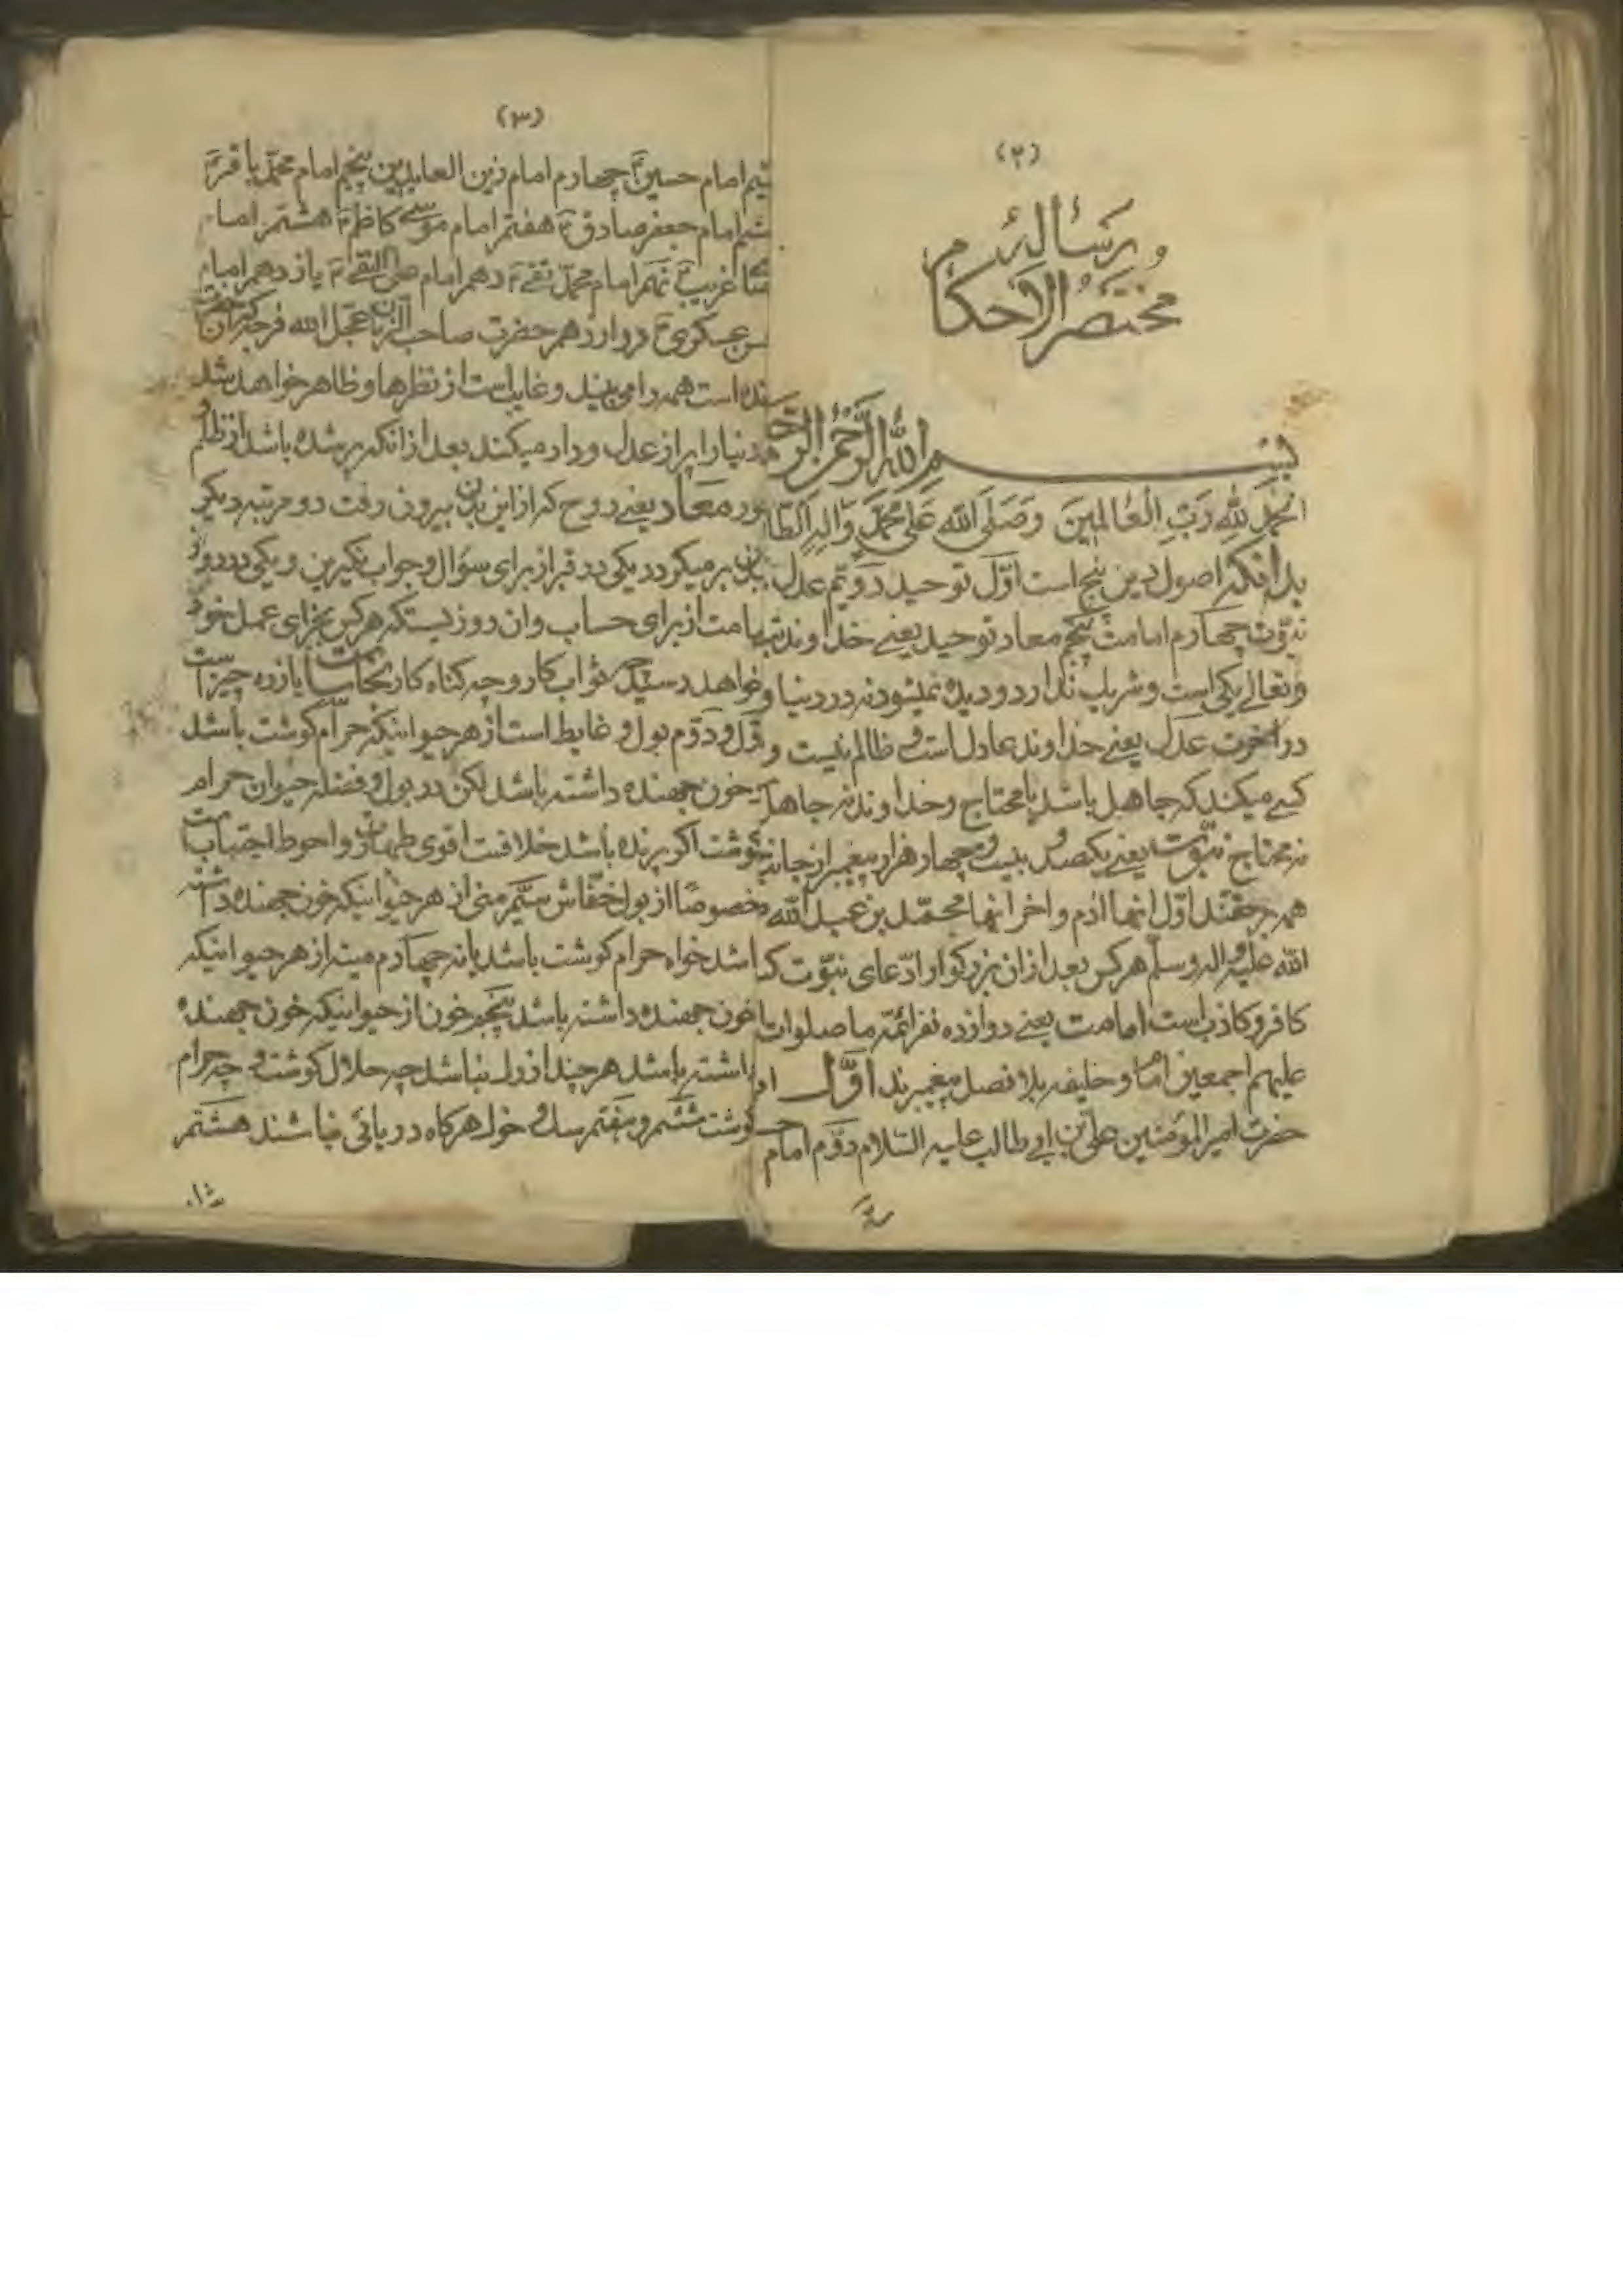 (۲)
رسالهٔ
مختصر الاحکام
بسم الله الرحمن الرح
الحمد لله رب العالمین وصلی الله علی محمد واله الطا
بدانکه اصول دین پنج است اول توحید دویم عدل
نبوت چهارم امامت پنجم معاد توحید یعنے خداوند
وتعالے یکی است وشریک ندارد ودیده نمیشود نه در دنیا و
در اخرت عدل یعنے خداوند عادل است و ظالم نیست و
کسے میکند که جاهل باشد یا محتاج وخداوند نه جاهل
نه محتاج نبوت یعنے یکصد و بیست و چهار هزار پیغمبر از جانب
همه برحقند اول انها ادم واخر انها محمد بن عبد الله
الله علیه واله وسلم هر کس بعد از ان بزرکوار ادعای نبوت ک
کافر وکاذب است امامت یعنے دوازده نفر ائمه ما صلوات
علیهم اجمعین امام وخلیفه بلا فصل پیغمبرند اول
حضرت امیر المؤمنین علی بن ابی طالب علیه السلام دوم امام
(۳)
امام حسین چهارم امام زین العابدین پنجم امام محمد باقر
امام جعفر صادق هفتم امام موسی کاظم هشتم اما
غریب نهم امام محمد تقی دهم امام علی النقی یازدهم امام
عسکری دوازدهم حضرت صاحب الزمان عجل الله فرجه که
است همه را می بیند وغایب است از نظرها وظاهر خواهد شد
دنیا را پر از عدل وداد میکند بعد از انکه پر شده باشد از ظلم
معاد یعنے روح که از این بدن بیرون رفت دو مرتبه دیکر
بدن بر میکردد یکی در قبر از برای سؤال وجواب نکیرین ویکی در روز
از برای حساب وان روزیستکه هر کس بجزای عمل خود
خواهد رسید چه ثواب کار وچه کناه کار نجاسات یازده چیز است
اول ودوم بول و غایط است از هر حیوانیکه حرام کوشت باشد
خون جهنده داشته باشد لکن در بول و فضله حیوان حرام
کوشت اکر پرنده باشد خلافست اقوی طهارت واحوط اجتناب است
خصوصا از بول خفاش سیم منی از هر حیوانیکه خون جهنده داشته
باشد خواه حرام کوشت باشد یا نه چهارم میته از هر حیوانیکه
خون جهنده داشته باشد پنجم خون از حیوانیکه خون جهنده
داشته باشد هر چند از دل نباشد چه حلال کوشت و چه حرام
کوشت ششم وهفتم سک و خوک هر کاه دریائی نباشند هشتم